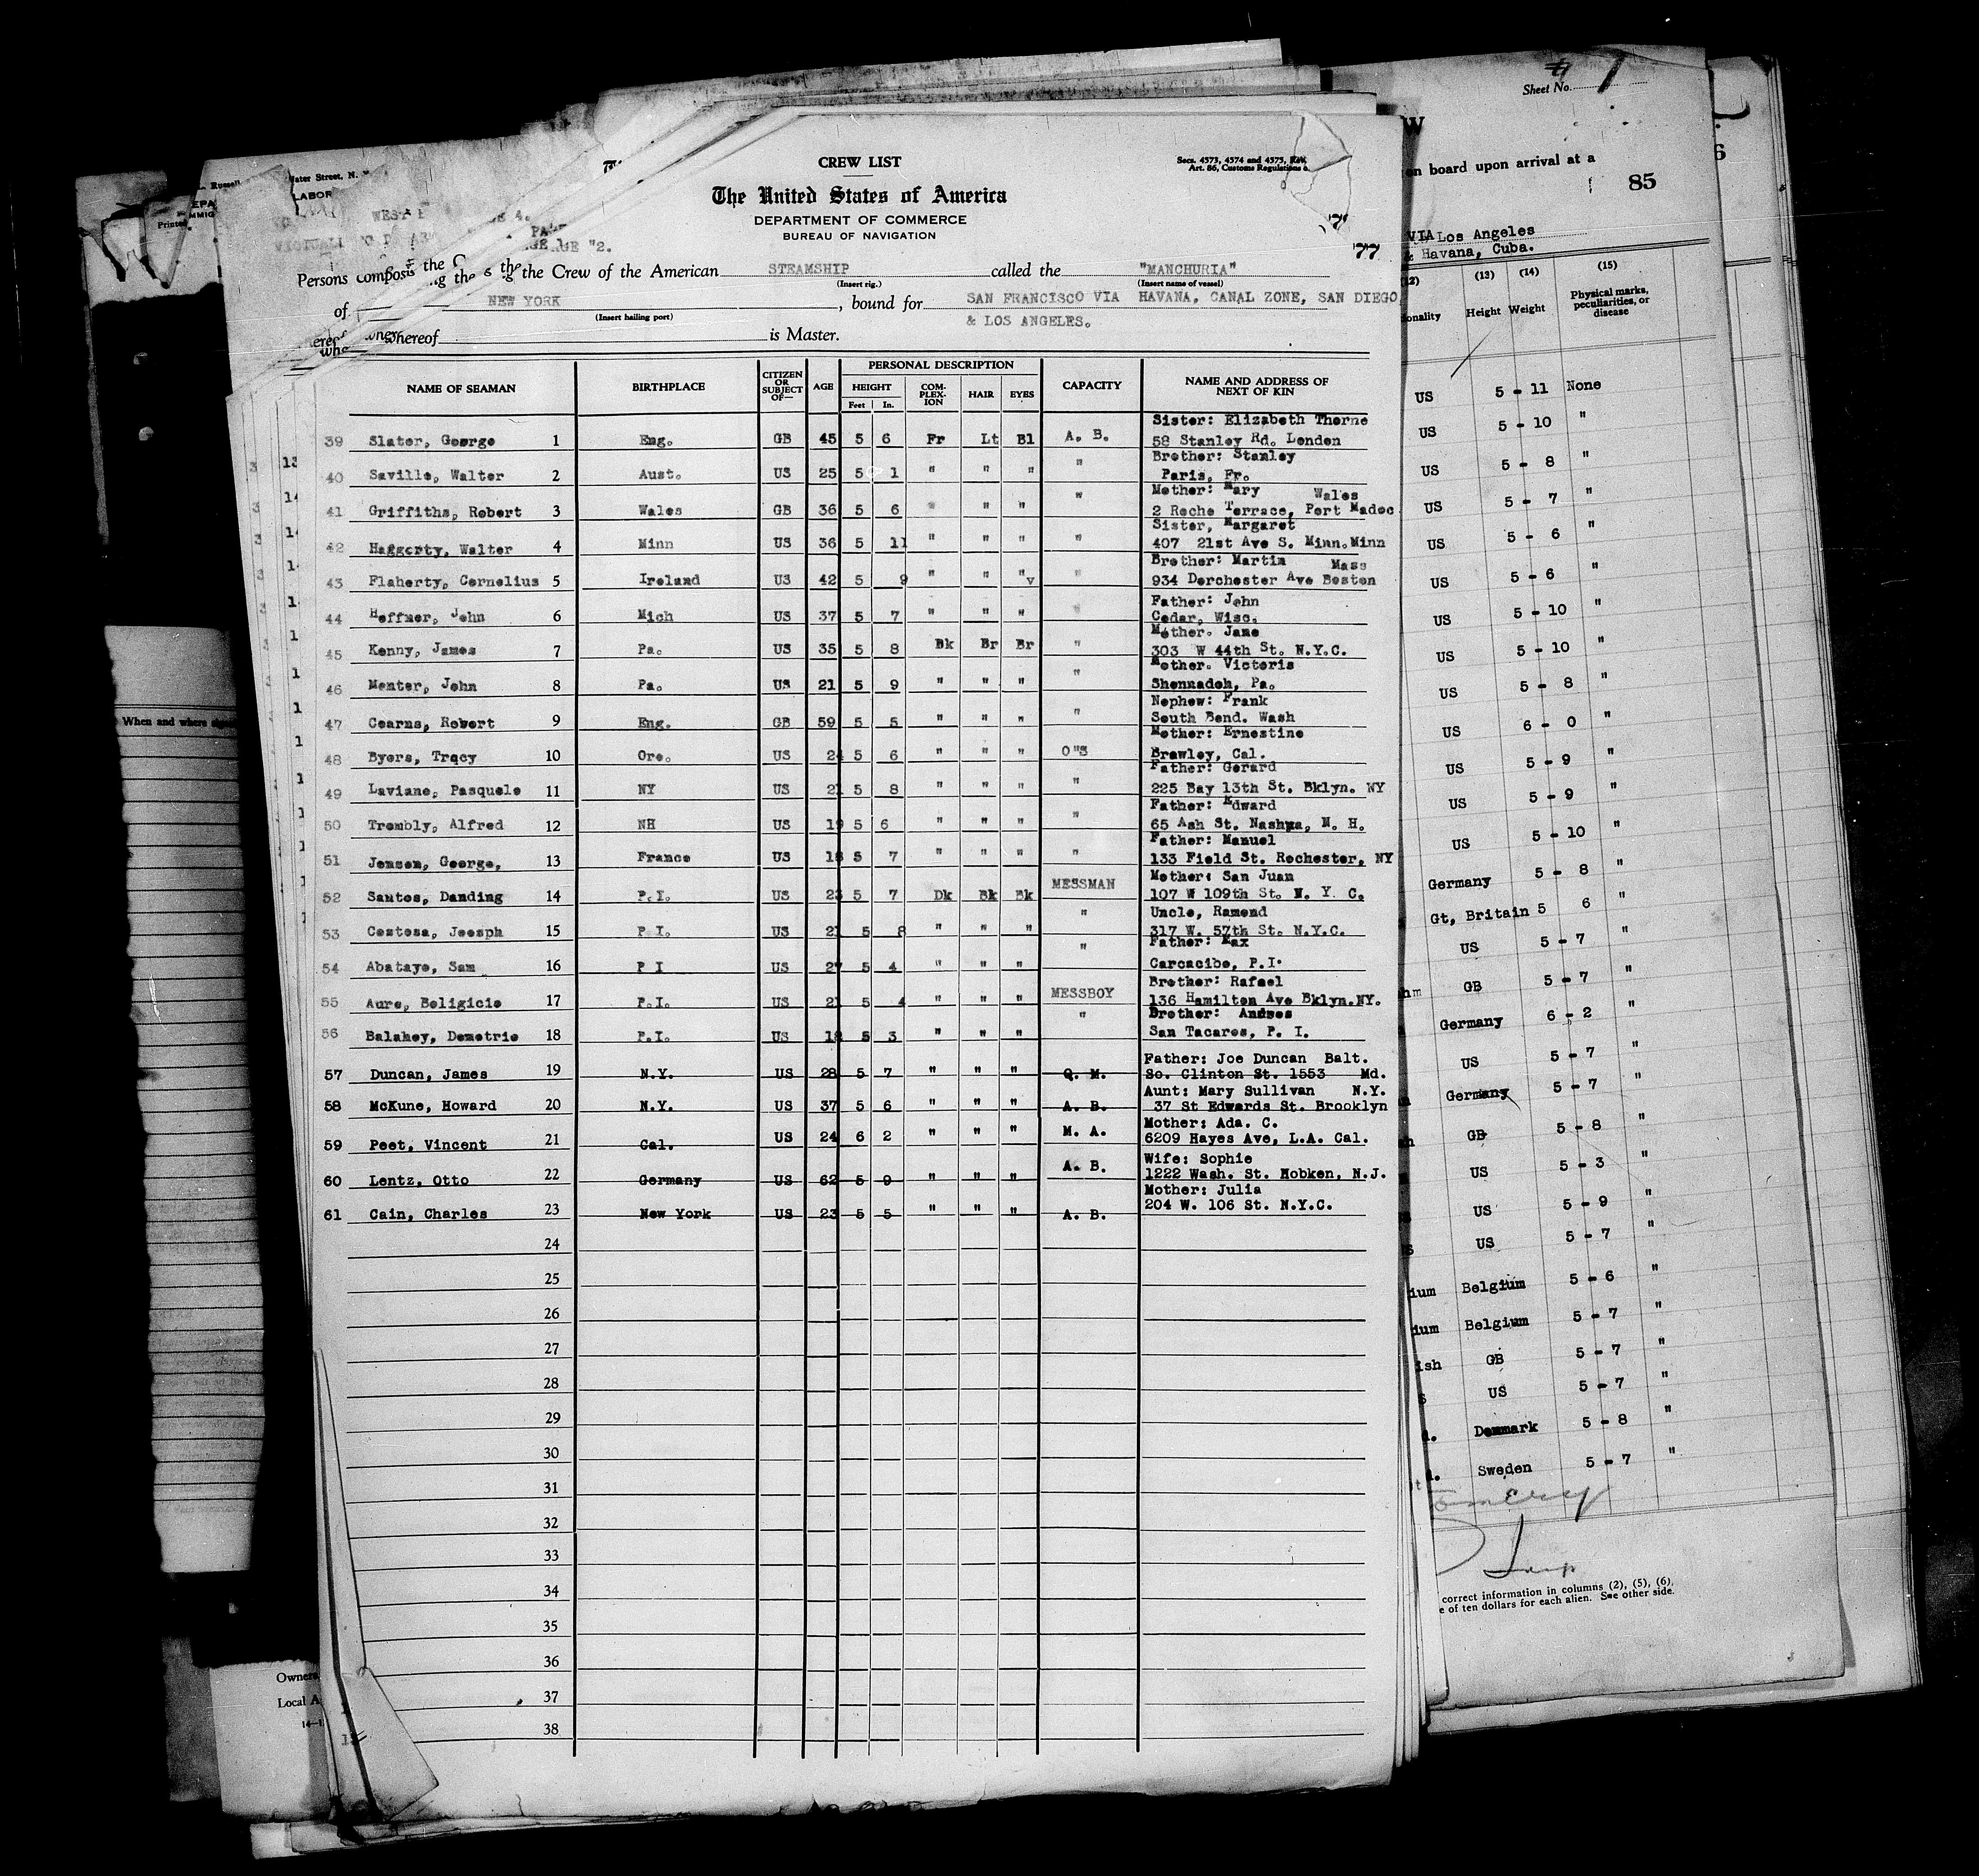 CREW LIST
Secs. 4573, 4574 and 4575,
Art. 86, Customs Regulations
The United States of America
DEPARTMENT OF COMMERCE
BUREAU OF NAVIGATION
77
Persons the Crew of the American STEAMSHIP called the "MANCHURIA"
(Insert rig.) (Insert name of vessel)
of NEW YORK, bound for SAN FRANCISCO VIA HAVANA, CANAL ZONE, SAN DIEGO
(Insert hailing port) & LOS ANGELES.
whereof is Master.
NAME OF SEAMAN BIRTHPLACE CITIZEN OR SUBJECT OF— AGE PERSONAL DESCRIPTION CAPACITY NAME AND ADDRESS OF NEXT OF KIN
HEIGHT COM-PLEX-ION HAIR EYES
Feet In.
Sister: Elizabeth Thorne
39 Slater, George 1 Eng. GB 45 5 6 Fr Lt Bl A. B. 58 Stanley Rd. London
Brother: Stanley
40 Saville, Walter 2 Aust. US 25 5 1 " " " " Paris, Fr.
Mother: Mary Wales
41 Griffiths, Robert 3 Wales GB 36 5 6 " " " " 2 Roche Terrace, Port Madoc
Sister, Margaret
42 Haggerty, Walter 4 Minn US 36 5 11 " " " " 407 21st Ave S. Minn. Minn
Brother: Martin Mass
43 Flaherty, Cornelius 5 Ireland US 42 5 9 " " " v " 934 Dorchester Ave Boston
Father: John
44 Heffner, John 6 Mich US 37 5 7 " " " " Cedar, Wisc.
Mother. Jane
45 Kenny, James 7 Pa. US 35 5 8 Bk Br Br " 303 W 44th St. N.Y.C.
Mother. Victoria
46 Menter, John 8 Pa. US 21 5 9 " " " " Shennadoh, Pa.
Nephew: Frank
47 Cearns, Robert 9 Eng. GB 59 5 5 " " " " South Bend. Wash
Mother: Ernestine
48 Byers, Tracy 10 Ore. US 24 5 6 " " " O"S Brawley, Cal.
Father: Gerard
49 Laviane, Pasquele 11 NY US 21 5 8 " " " " 225 Bay 13th St. Bklyn. NY
Father: Edward
50 Trembly, Alfred 12 NH US 19 5 6 " " " " 65 Ash St. Nashua, N. H.
Father: Manuel
51 Jensen, George, 13 France US 18 5 7 " " " " 133 Field St. Rochester, NY
Mother: San Juan
52 Santos, Danding 14 P.I. US 23 5 7 Dk Bk Bk MESSMAN 107 W 109th St. N. Y. C.
Uncle, Ramond
53 Costosa, Joesph 15 P.I. US 21 5 8 " " " " 317 W. 57th St. N.Y.C.
Father: Max
54 Abataye, Sam 16 P I US 27 5 4 " " " " Carcacibe, P.I.
Brother: Rafael
55 Aure, Beligicio 17 P.I. US 21 5 4 " " " MESSBOY 136 Hamilton Ave Bklyn.NY.
Brother: Andres
56 Balahey, Demetrio 18 P.I. US 18 5 3 " " " " San Tacares, P. I.
Father: Joe Duncan Balt.
57 Duncan, James 19 N.Y. US 28 5 7 " " " Q. M. So. Clinton St. 1553 Md.
Aunt: Mary Sullivan N.Y.
58 McKune, Howard 20 N.Y. US 37 5 6 " " " A. B. 37 St Edwards St. Brooklyn
Mother: Ada. C.
59 Peet, Vincent 21 Cal. US 24 6 2 " " " M. A. 6209 Hayes Ave, L.A. Cal.
Wife: Sophie
60 Lentz, Otto 22 Germany US 62 5 9 " " " A. B. 1222 Wash. St. Hobken, N.J.
Mother: Julia
61 Cain, Charles 23 New York US 23 5 5 " " " A. B. 204 W. 106 St. N.Y.C.
24
25
26
27
28
29
30
31
32
33
34
35
36
37
38
Sheet No. 1
on board upon arrival at a
85
VIA Los Angeles
& Havana, Cuba.
(13) (14) (15)
Height Weight Physical marks, peculiarities, or disease
US 5 - 11 None
US 5 - 10 "
US 5 - 8 "
US 5 - 7 "
US 5 - 6 "
US 5 - 6 "
US 5 - 10 "
US 5 - 10 "
US 5 - 8 "
US 6 - 0 "
US 5 - 9 "
US 5 - 9 "
US 5 - 10 "
Germany 5 - 8 "
Gt, Britain 5 6 "
US 5 - 7 "
GB 5 - 7 "
Germany 6 - 2 "
US 5 - 7 "
Germany 5 - 7 "
GB 5 - 8 "
US 5 - 3 "
US 5 - 9 "
US 5 - 7 "
Belgium 5 - 6 "
Belgium 5 - 7 "
GB 5 - 7 "
US 5 - 7 "
Denmark 5 - 8 "
Sweden 5 - 7 "
correct information in columns (2), (5), (6),
of ten dollars for each alien. See other side.
When and where
Owners
Local